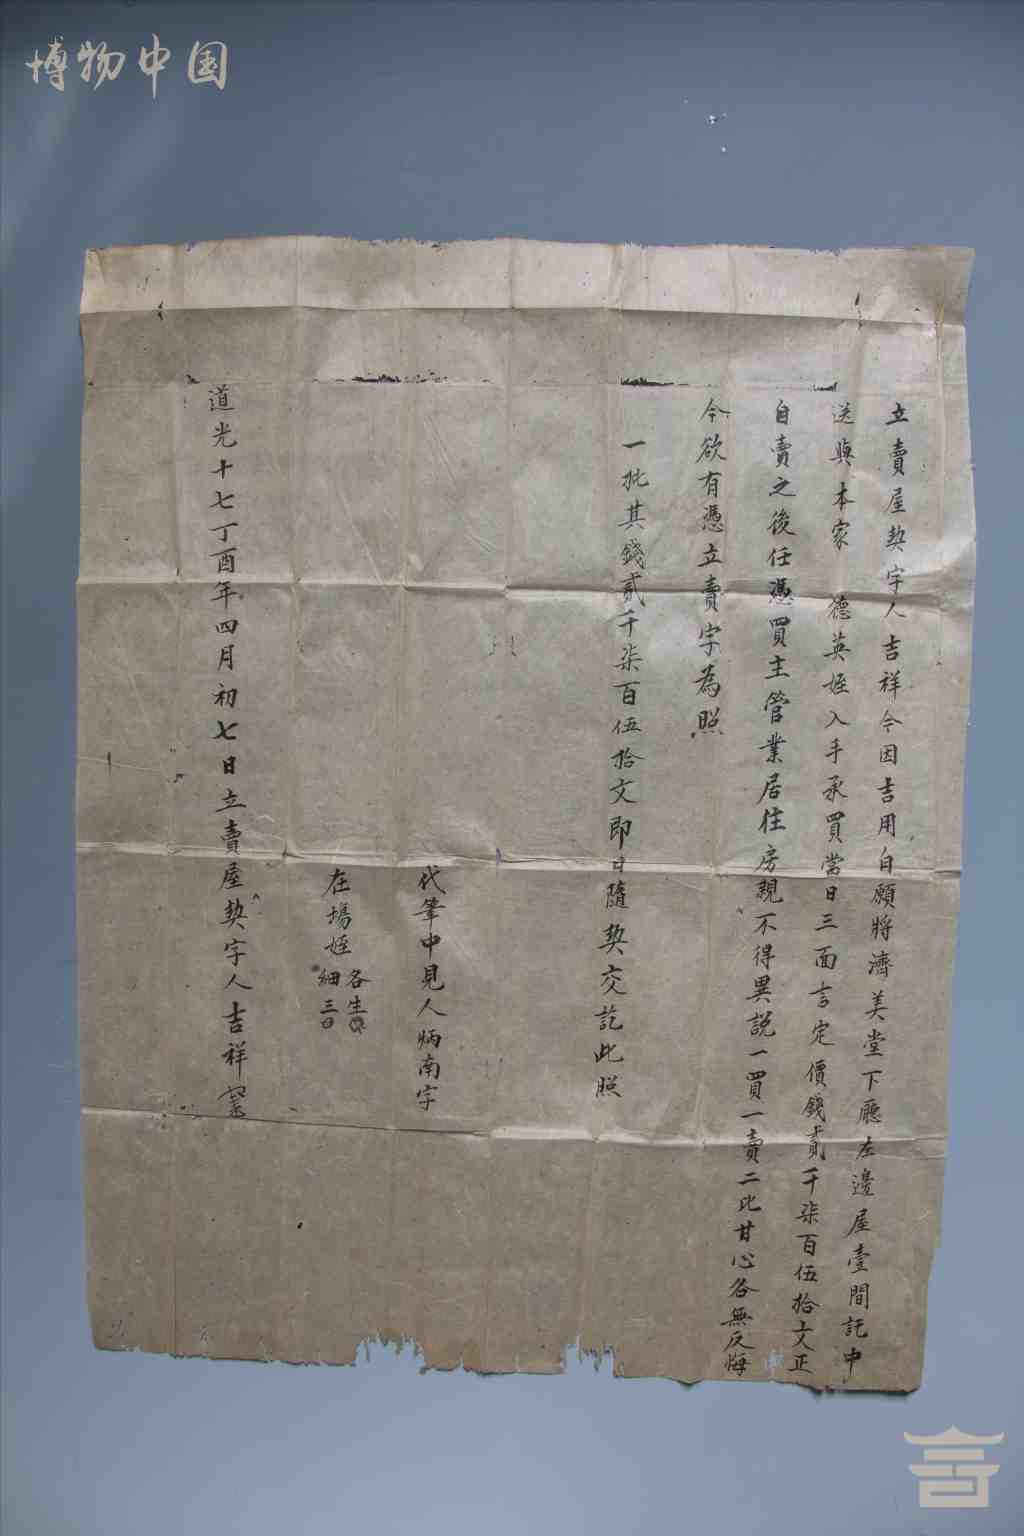 博物中国
立賣屋契字人吉祥今因吉用自願將濟美堂下廳左邊屋壹間託中
送與本家德英姪入手承買當日三面言定價錢貳千柒百伍拾文正
自賣之後任憑買主管業居住房親不得異説一買一賣二比甘心各無反悔
今欲有憑立賣字為照
一批其錢貳千柒百伍拾文即日隨契交訖此照
代筆中見人炳南字
在塲姪各生
細三
道光十七丁酉年四月初七日立賣屋契字人吉祥